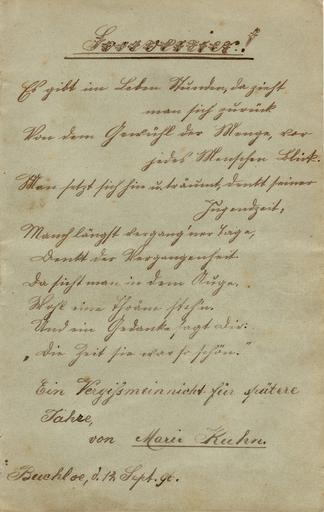 Souvenier!
Es gibt im Leben Stunden, da zieht
man sich zurück
Von dem Gewühl der Menge, vor
jedes Menschen Blick.
Man setzt sich hin u. träumt, denkt seiner
Jugendzeit,
Manch längst vergang'ner Tage,
Denkt der Vergangenheit.
Da sieht man in dem Auge.
Wohl eine Thräne steh'n.
Und ein Gedanke sagt dir:
„Die Zeit sie war so schön."
Ein Vergißmeinnicht für spätere
Jahre,
von Marie Kuhn.
Buchloe, d. 12 Sept. 91.